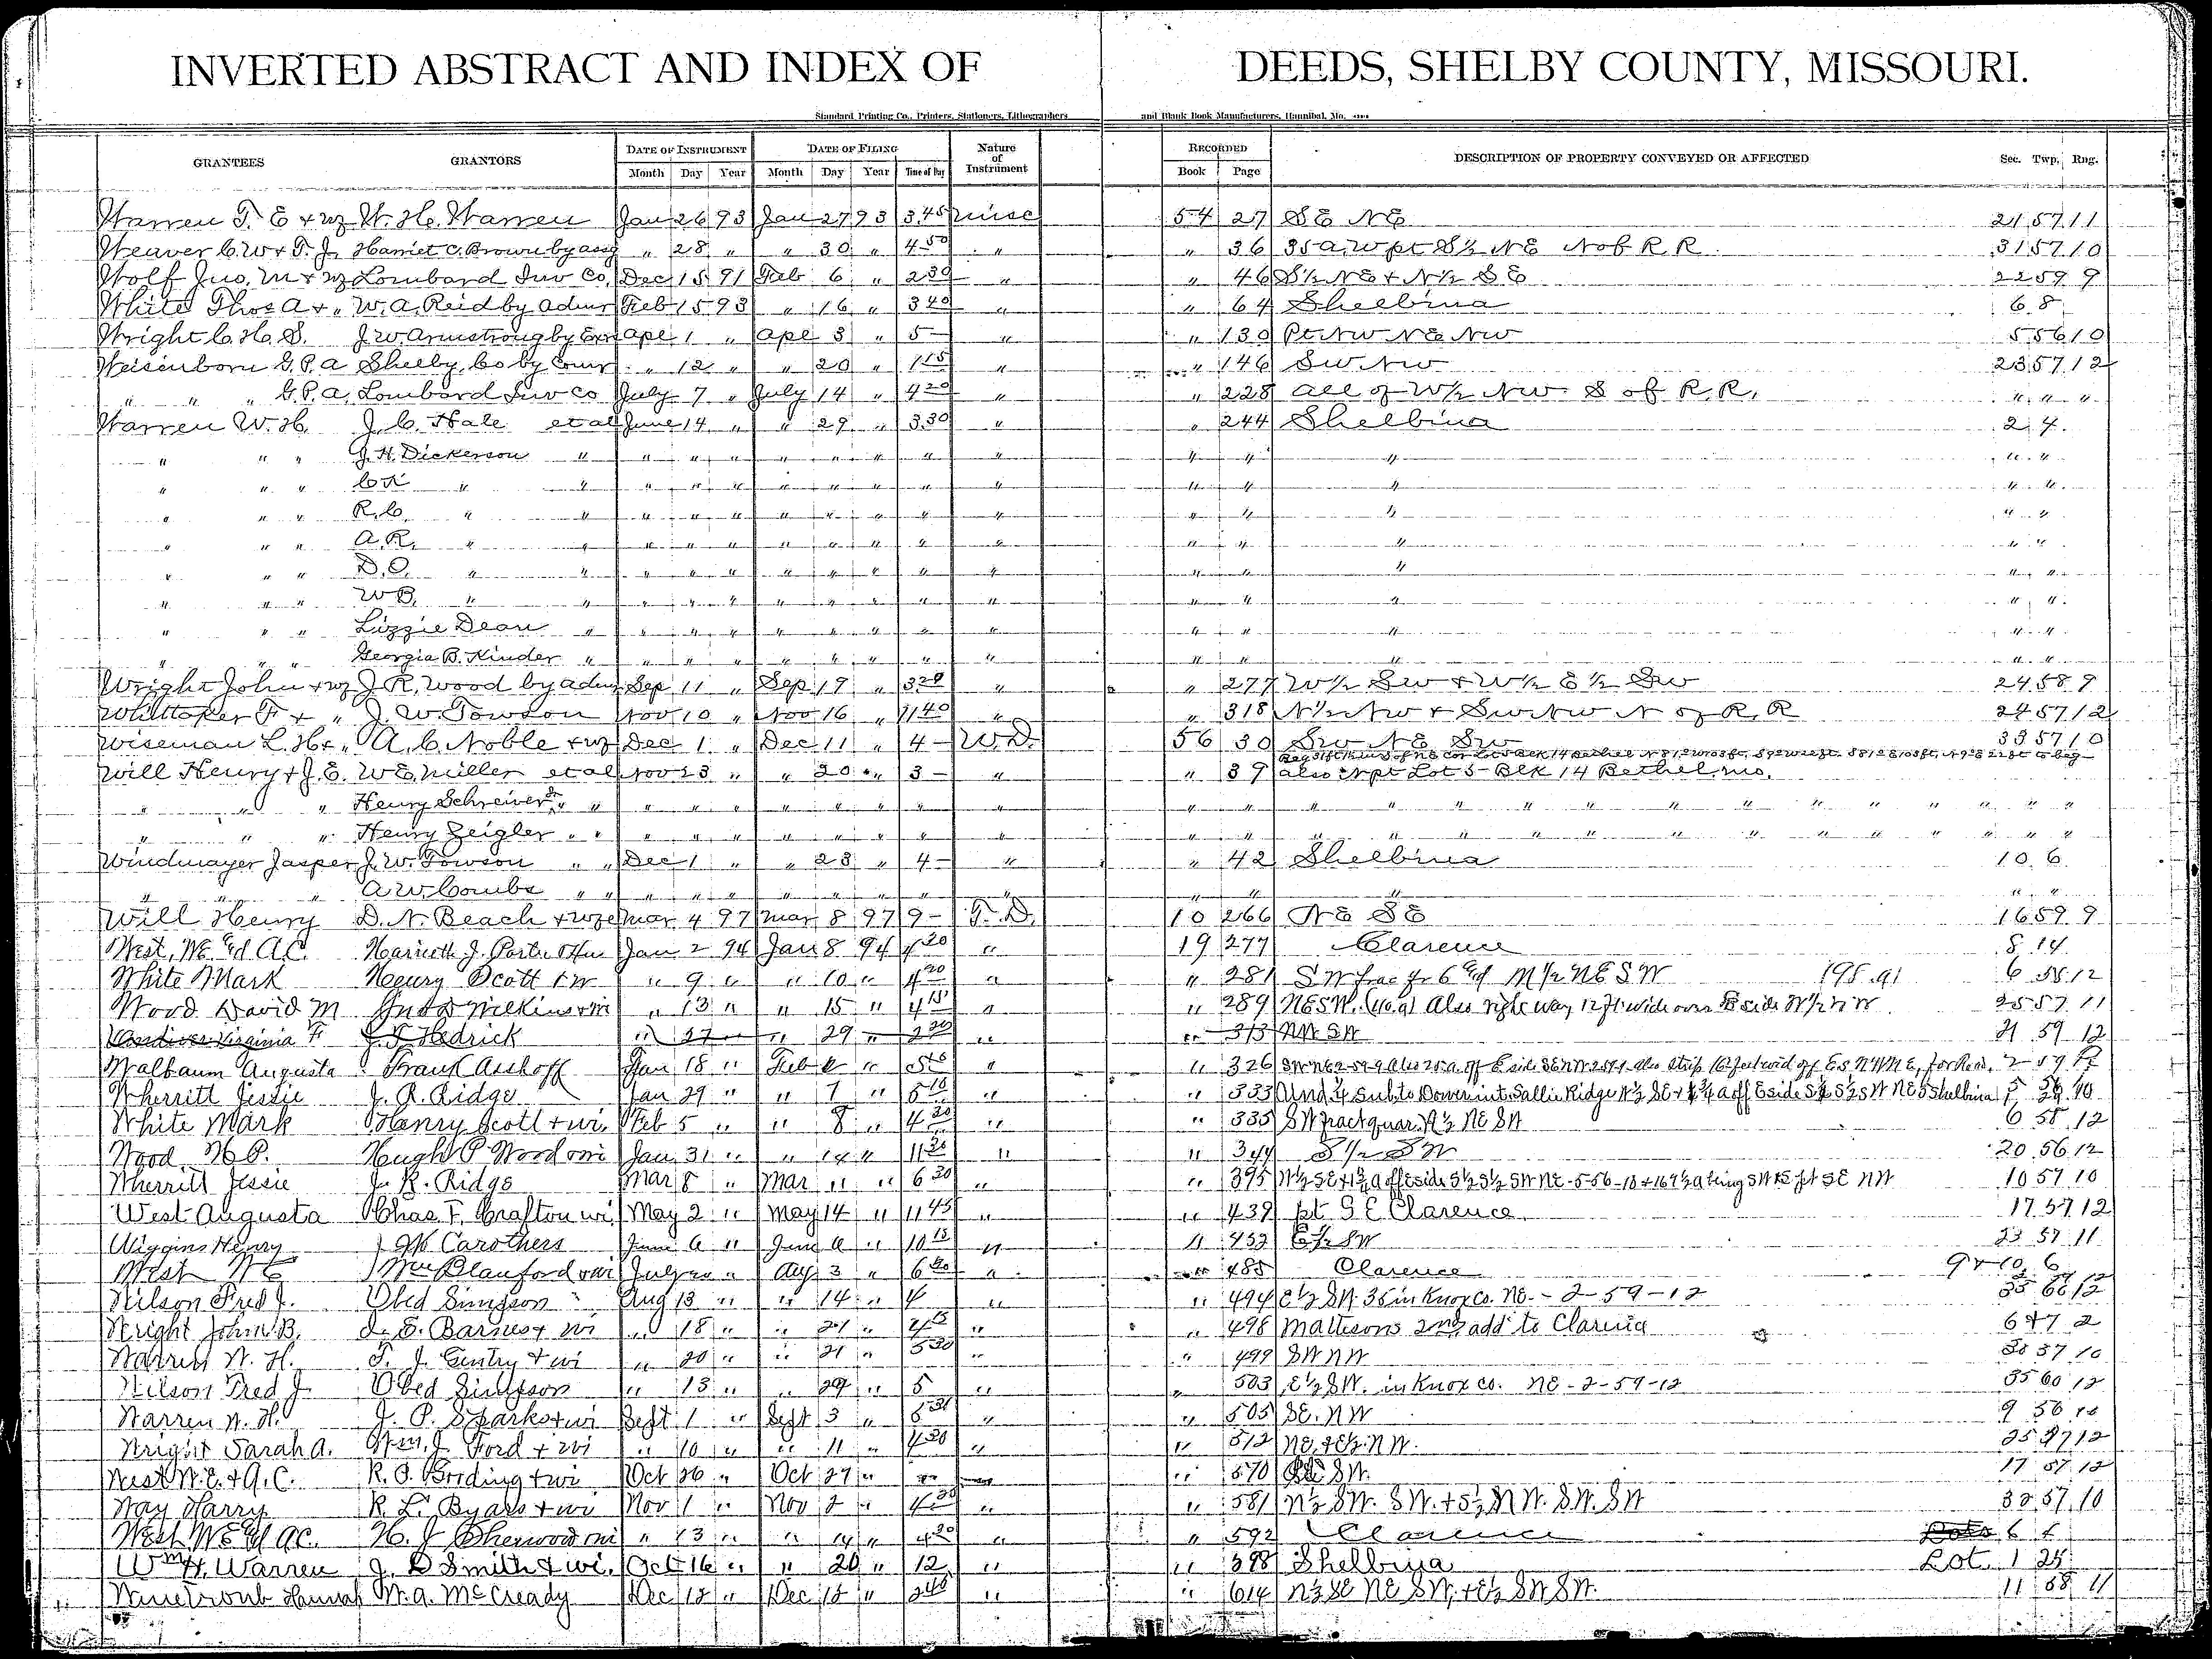 INVERTED ABSTRACT AND INDEX OF DEEDS, SHELBY COUNTY, MISSOURI.
Standard Printing Co., Printers, Stationers, Lithographers and Blank Book Manufacturers, Hannibal, Mo.
GRANTEES GRANTORS DATE OF INSTRUMENT DATE OF FILING Nature of Instrument RECORDED DESCRIPTION OF PROPERTY CONVEYED OR AFFECTED Sec. Twp. Rng.
Month Day Year Month Day Year Time of Day Book Page
Warren T. E + wf W. H. Warren Jan 26 93 Jan 27 93 3.45 misc 54 27 SE NE 21 57 11
Weaver C. W + T. J. Harriet C. Brown by assg " 28 " " 30 " 4 50 " " 36 35 a. W pt S½ NE N of R R 31 57 10
Wolf Jno. M + wf Lombard Inv Co. Dec 15 91 Feb 6 " 2 30 " " 46 S½ NE + N½ SE 22 59 9
White Thos A + " W. A. Reid by admr Feb 15 93 " 16 " 3 40 " " 64 Shelbina 6 8
Wright C. H. S. J. W. Armstrong by Exr Apr 1 " Apr 3 " 5 – " " 130 Pt NW NE NW 5 56 10
Weisenborn G. P. A Shelby Co by Comr " 12 " " 20 " 1 15 " " 146 SW NW 23 57 12
" " " G. P. A. Lombard Inv Co July 7 " July 14 " 4 20 " " 228 all of W½ NW S of R. R. " " "
Warren W. H. J. C. Hale et al June 14 " " 29 " 3.30 " " 244 Shelbina 2 4
" " " J. H. Dickerson " " " " " " " " " " " " " "
" " " C K " " " " " " " " " " " " " " "
" " " R. C. " " " " " " " " " " " " " " "
" " " A. R. " " " " " " " " " " " " " " "
" " " D. O. " " " " " " " " " " " " " " "
" " " W B. " " " " " " " " " " " " " " "
" " " Lizzie Dean " " " " " " " " " " " " " "
" " " Georgia B. Kinder " " " " " " " " " " " " " "
Wright John + wf J. R. Wood by adm Sep 11 " Sep 19 " 3 20 " " 277 W½ SW + W½ E½ SW 24 58 9
Whittaker F + " J. W. Towson Nov 10 " Nov 16 " 11 40 " " 318 N½ NW + SW NW N of R. R 24 57 12
Wiseman L. H + " A. C. Noble + wf Dec 1 " Dec 11 " 4 – W. D. 56 30 SW NE SW 33 57 10
Will Henry + J. E. W E. Miller et al Nov 23 " " 20 " 3 – " " 39 also pt Lot 5 – Blk 14 Bethel Mo.
" " " Henry Schreiver Sr " " " " " " " " " " " " " " " " " " " " " " " "
" " " Henry Zeigler " " " " " " " " " " " " " " " " " " " " " " " "
Windmayer Jasper J. W. Towson " " Dec 1 " " 23 " 4 – " " 42 Shelbina 10 6
" " A. W. Combs " " " " " " " " " " " " " " "
Will Henry D. N. Beach + wife Mar 4 97 Mar 8 97 9 – T. D. 10 266 NE SE 16 59 9
West, W E & A. C. J. Porter Jan 2 94 Jan 8 94 4 20 " 19 277 Clarence 8 14
White Mark Henry Scott + w " 9 " " 10 " 4 20 " " 281 6 58 12
Wood David M Wilkinson " 13 " " 15 " 4 15 " " 289 NE SW. Also right way 12 ft wide over E side W½ NW 25 57 11
Virginia F. J. F. Hedrick " 27 " 29 " 2 30 " " 313 NW SW 21 59 12
Walbaum Augusta Frank Asshoff Jan 18 " Feb " " " 326
Wherritt Jessie J. R. Ridge Jan 29 " " 7 " 5 15 " " 333 Und ¼ sub. to Dower int. Sallie Ridge N½ SE Shelbina
White Mark Henry Scott + wi. Feb 5 " " 8 " 4 30 " " 335 SW fract quar. N½ NE SW 6 58 12
Wood, H P. Hugh P Wood Jan 31 " " 14 " 11 30 " " 344 S½ SW 20 56 12
Wherritt Jessie J. R. Ridge Mar 8 " Mar " " 6 30 " " 395 10 57 10
West Augusta Chas. F. Crafton wi May 2 " May 14 " 11 45 " " 439 pt S E Clarence 17 57 12
Wiggins Henry Carothers June 6 " June 6 " 10 15 " " 453 E½ SW 23 57 11
West W E Wm Blanford wi July " Aug 3 " 6 20 " " 485 Clarence 9 + 10, 6
Wilson Fred J. Obed Simpson Aug 13 " " 14 " 4 " " 494 E½ SW. 35 in Knox Co. NE. – 2 – 59 – 12
Wright John B. Barnes + wi " 18 " " 21 " " " 498 Mattesons 2nd add to Clarence 6 + 7 2
Warren W. H. T. J. Gentry + wi " 20 " " 21 " 5 30 " " 499 SW NW
Wilson Fred J Obed Simpson " 13 " " 29 " 5 " " 503 E½ SW. in Knox Co. NE – 2 – 59 – 12 35 60 12
Warren W. H. J. P. Sparks + wi Sept 1 " Sept 3 " " " 505 SE. NW 9 56 10
Wright Sarah A. Wm. J. Ford + wi " 10 " " 11 " 4 30 " " 512 NE + E½ NW.
West W. E. + A. C. Boding + wi Oct 26 " Oct 27 " " 570 SW. 17 57 12
Way Harry R. L. Byars + wi Nov 1 " Nov 2 " 4 30 " " 581 N½ SW. SW. + S½ NW. SW. SW 32 57 10
West W E & A C. H. J Sherwood wi " 13 " " 14 " 4 30 " " 592 Clarence Lots 6
Wm H. Warren J. D Smith + wi. Oct 16 " " 20 " 12 " " 598 Shelbina Lot 1 25
Hannah W. A. McCready Dec 15 " Dec 15 " 2 45 " " 614 11 58 11